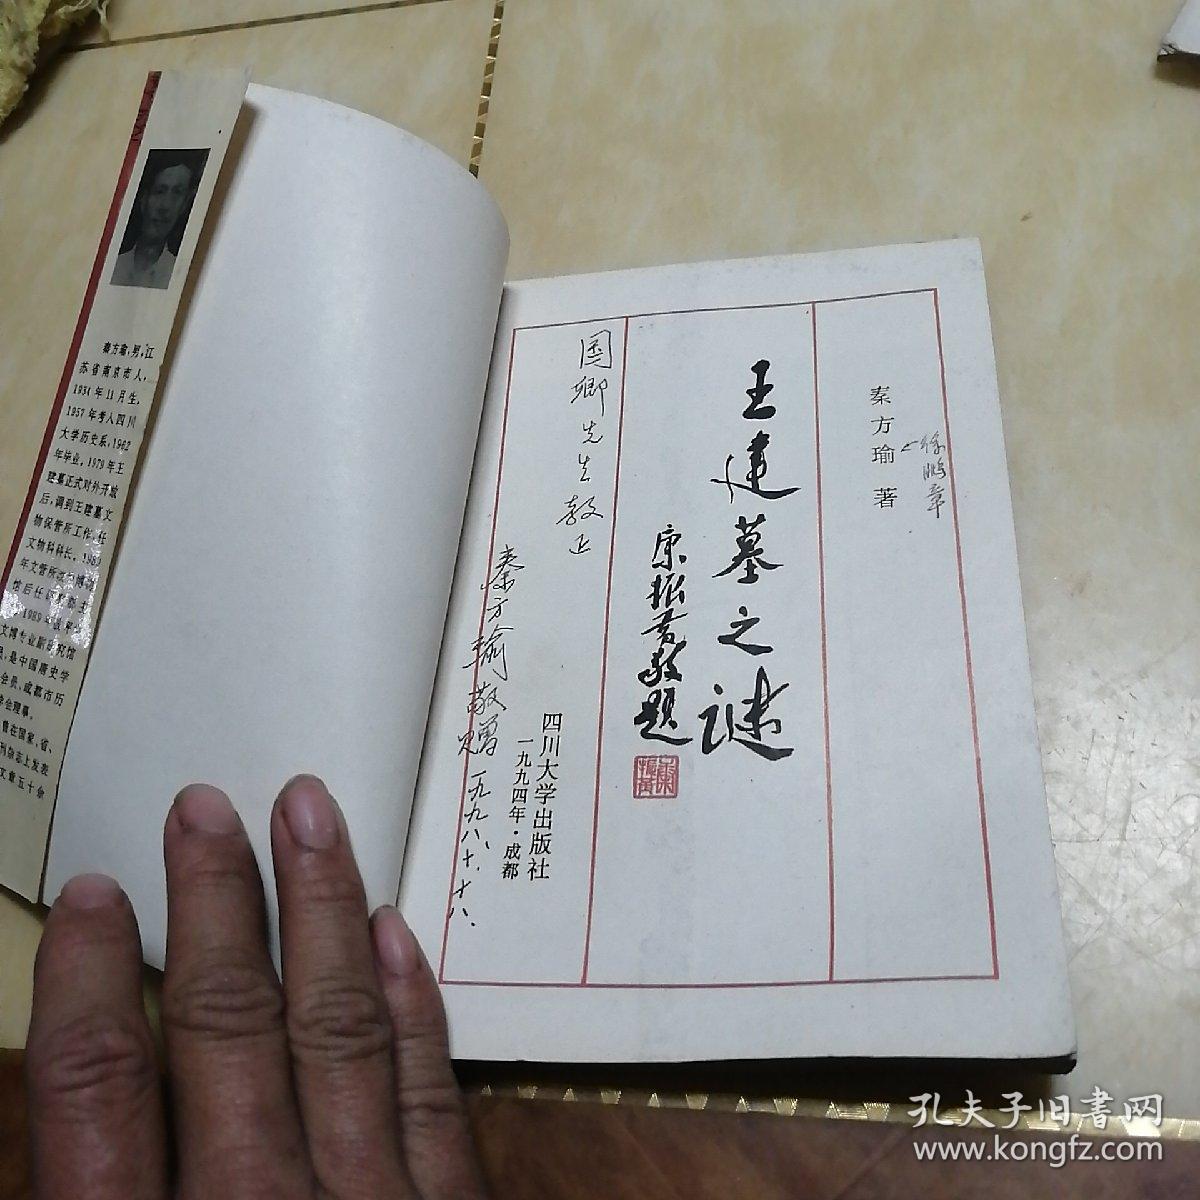 秦方瑜，男，江
苏省南京市人，
1934年11月生，
1957年考入四川
大学历史系，1962
年毕业。1979年王
建墓正式对外开放
后，调到王建墓文
物保管所工作，任
文物科科长。198
年文管所改
馆后任
1989年
文博专业副研究馆
员，是中国唐史学
会会员、成都市历
学会理事。
曾在国家、省、
刊杂志上发表
文章五十余
秦方瑜 著
徐鹏章
王建墓之谜
康振黄敬题
四川大学出版社
一九九四年·成都
国卿先生教正
秦方瑜敬赠 一九九八、十、十八、
孔夫子旧书网
www.kongfz.com